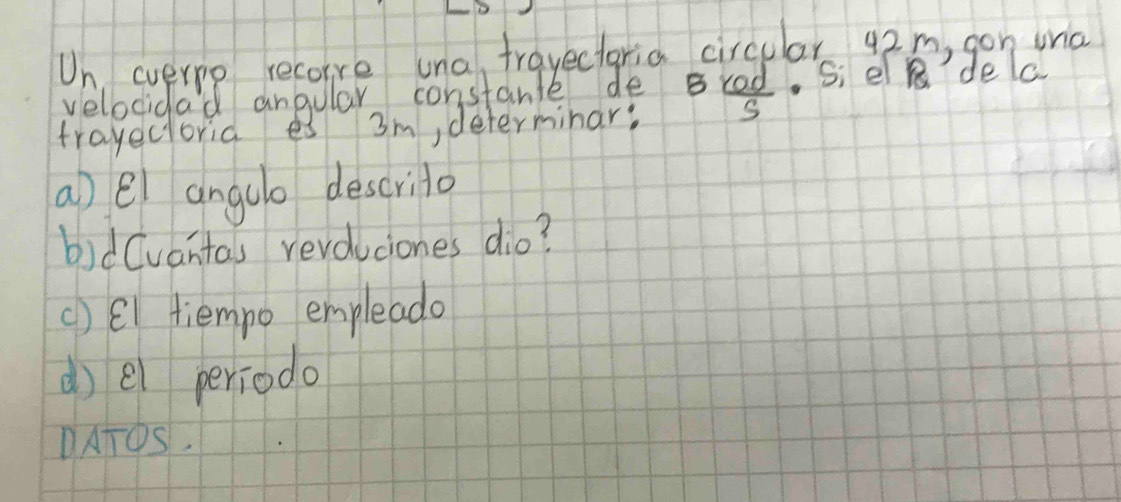 Un cuerpo recorre una trayectoria circular 42 m, con una
velocidad angular constante de 8 rad/s. Si el R de la
trayectoria es 3m, determinar:
a) El angulo descrito
b) ¿Cuántas revoluciones dio?
c) El tiempo empleado
d) El periodo
DATOS.